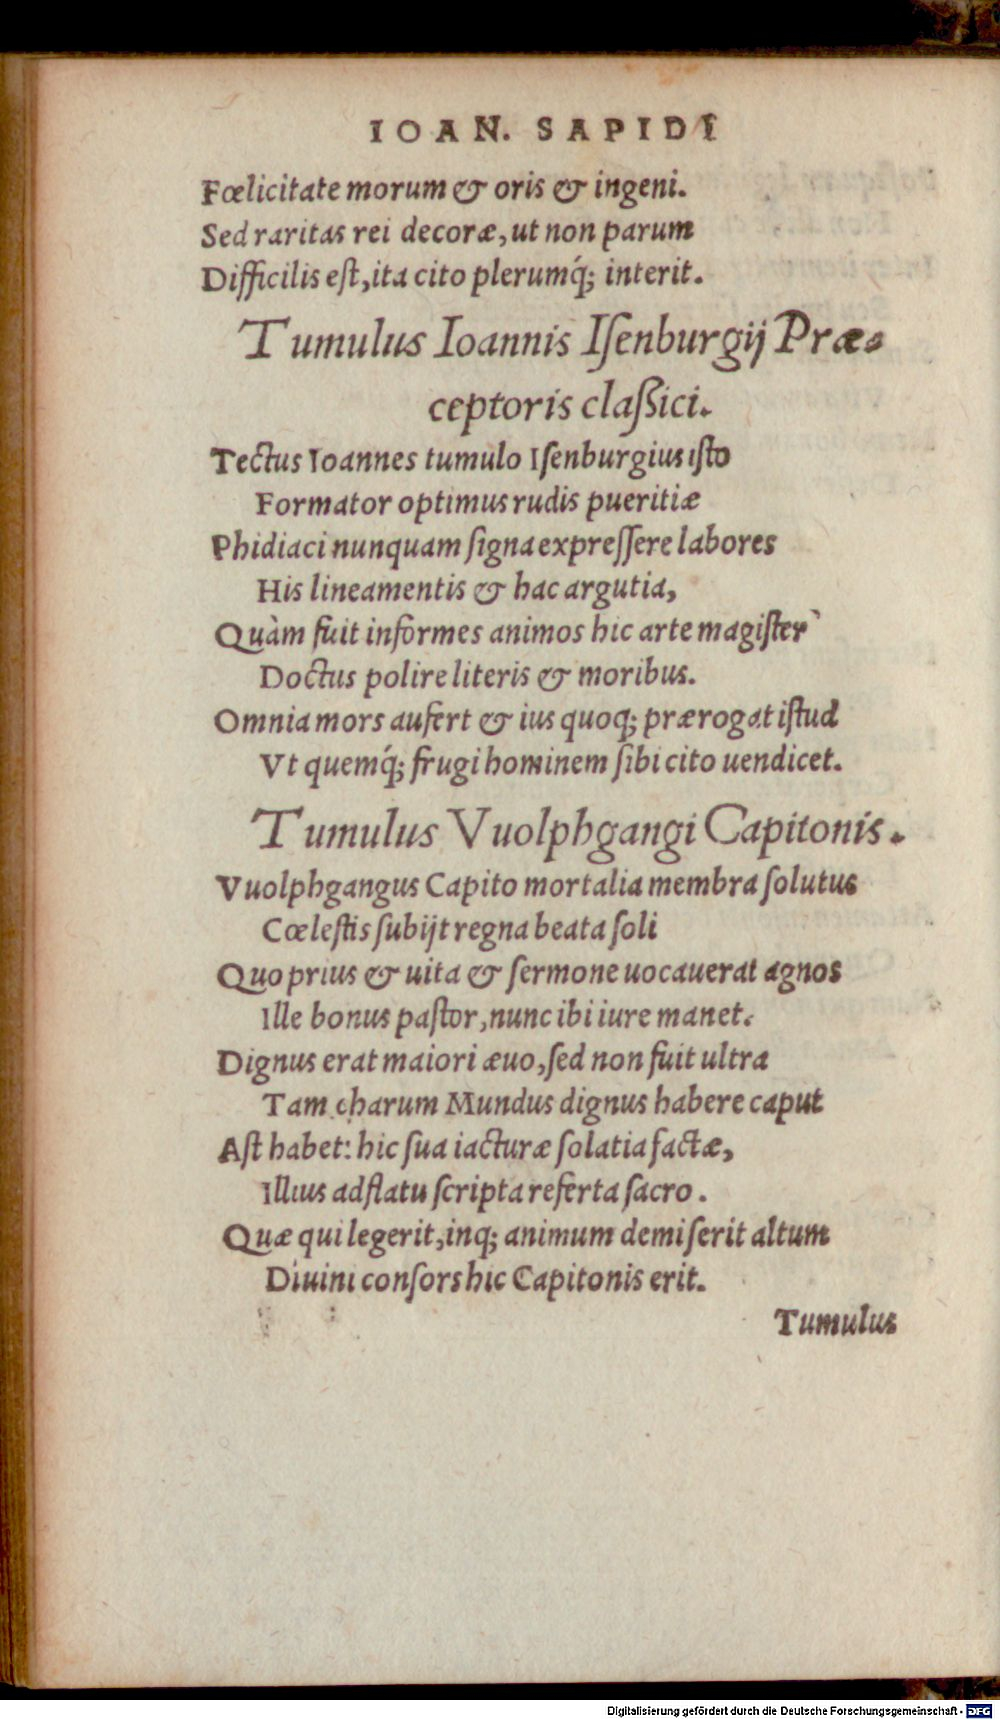 IOAN. SAPIDI
Fœlicitate morum & oris & ingeni.
Sed raritas rei decoræ, ut non parum
Difficilis eſt, ita cito plerumq́; interit.
Tumulus Ioannis Iſenburgij Præ-
ceptoris claßici.
Tectus Ioannes tumulo Iſenburgius iſto
Formator optimus rudis pueritiæ
Phidiaci nunquam ſigna expreſſere labores
His lineamentis & hac argutia,
Quàm fuit informes animos hic arte magiſter
Doctus polire literis & moribus.
Omnia mors aufert & ius quoq; prærogat iſtud
Vt quemq́; frugi hominem ſibi cito uendicet.
Tumulus Vuolphgangi Capitonis.
Vuolphgangus Capito mortalia membra ſolutus
Cœleſtis ſubijt regna beata ſoli
Quo prius & uita & ſermone uocauerat agnos
Ille bonus paſtor, nunc ibi iure manet.
Dignus erat maiori æuo, ſed non fuit ultra
Tam charum Mundus dignus habere caput
Aſt habet: hic ſua iacturæ ſolatia factæ,
Illius adflatu ſcripta referta ſacro.
Quæ qui legerit, inq; animum demiſerit altum
Diuini conſors hic Capitonis erit.
Tumulus
Digitalisierung gefördert durch die Deutsche Forschungsgemeinschaft - DFG